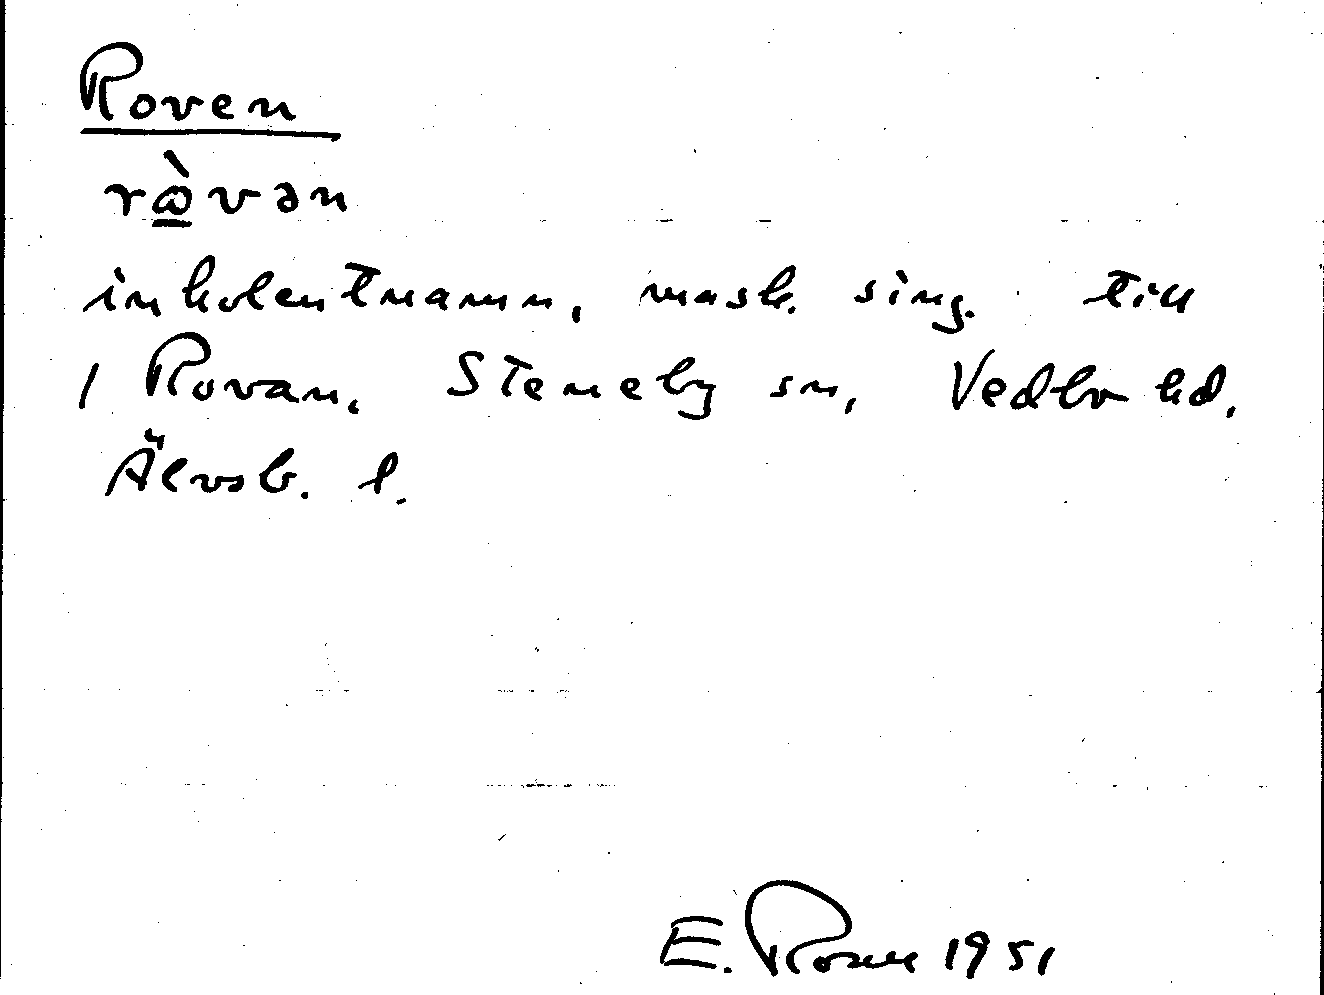 Roven
rὼ̱vən
inkolentnamn, mask. sing. till
1 Rovan, Steneby sn, Vedbo hd,
Älvsb. l.
E. Rosell 1951